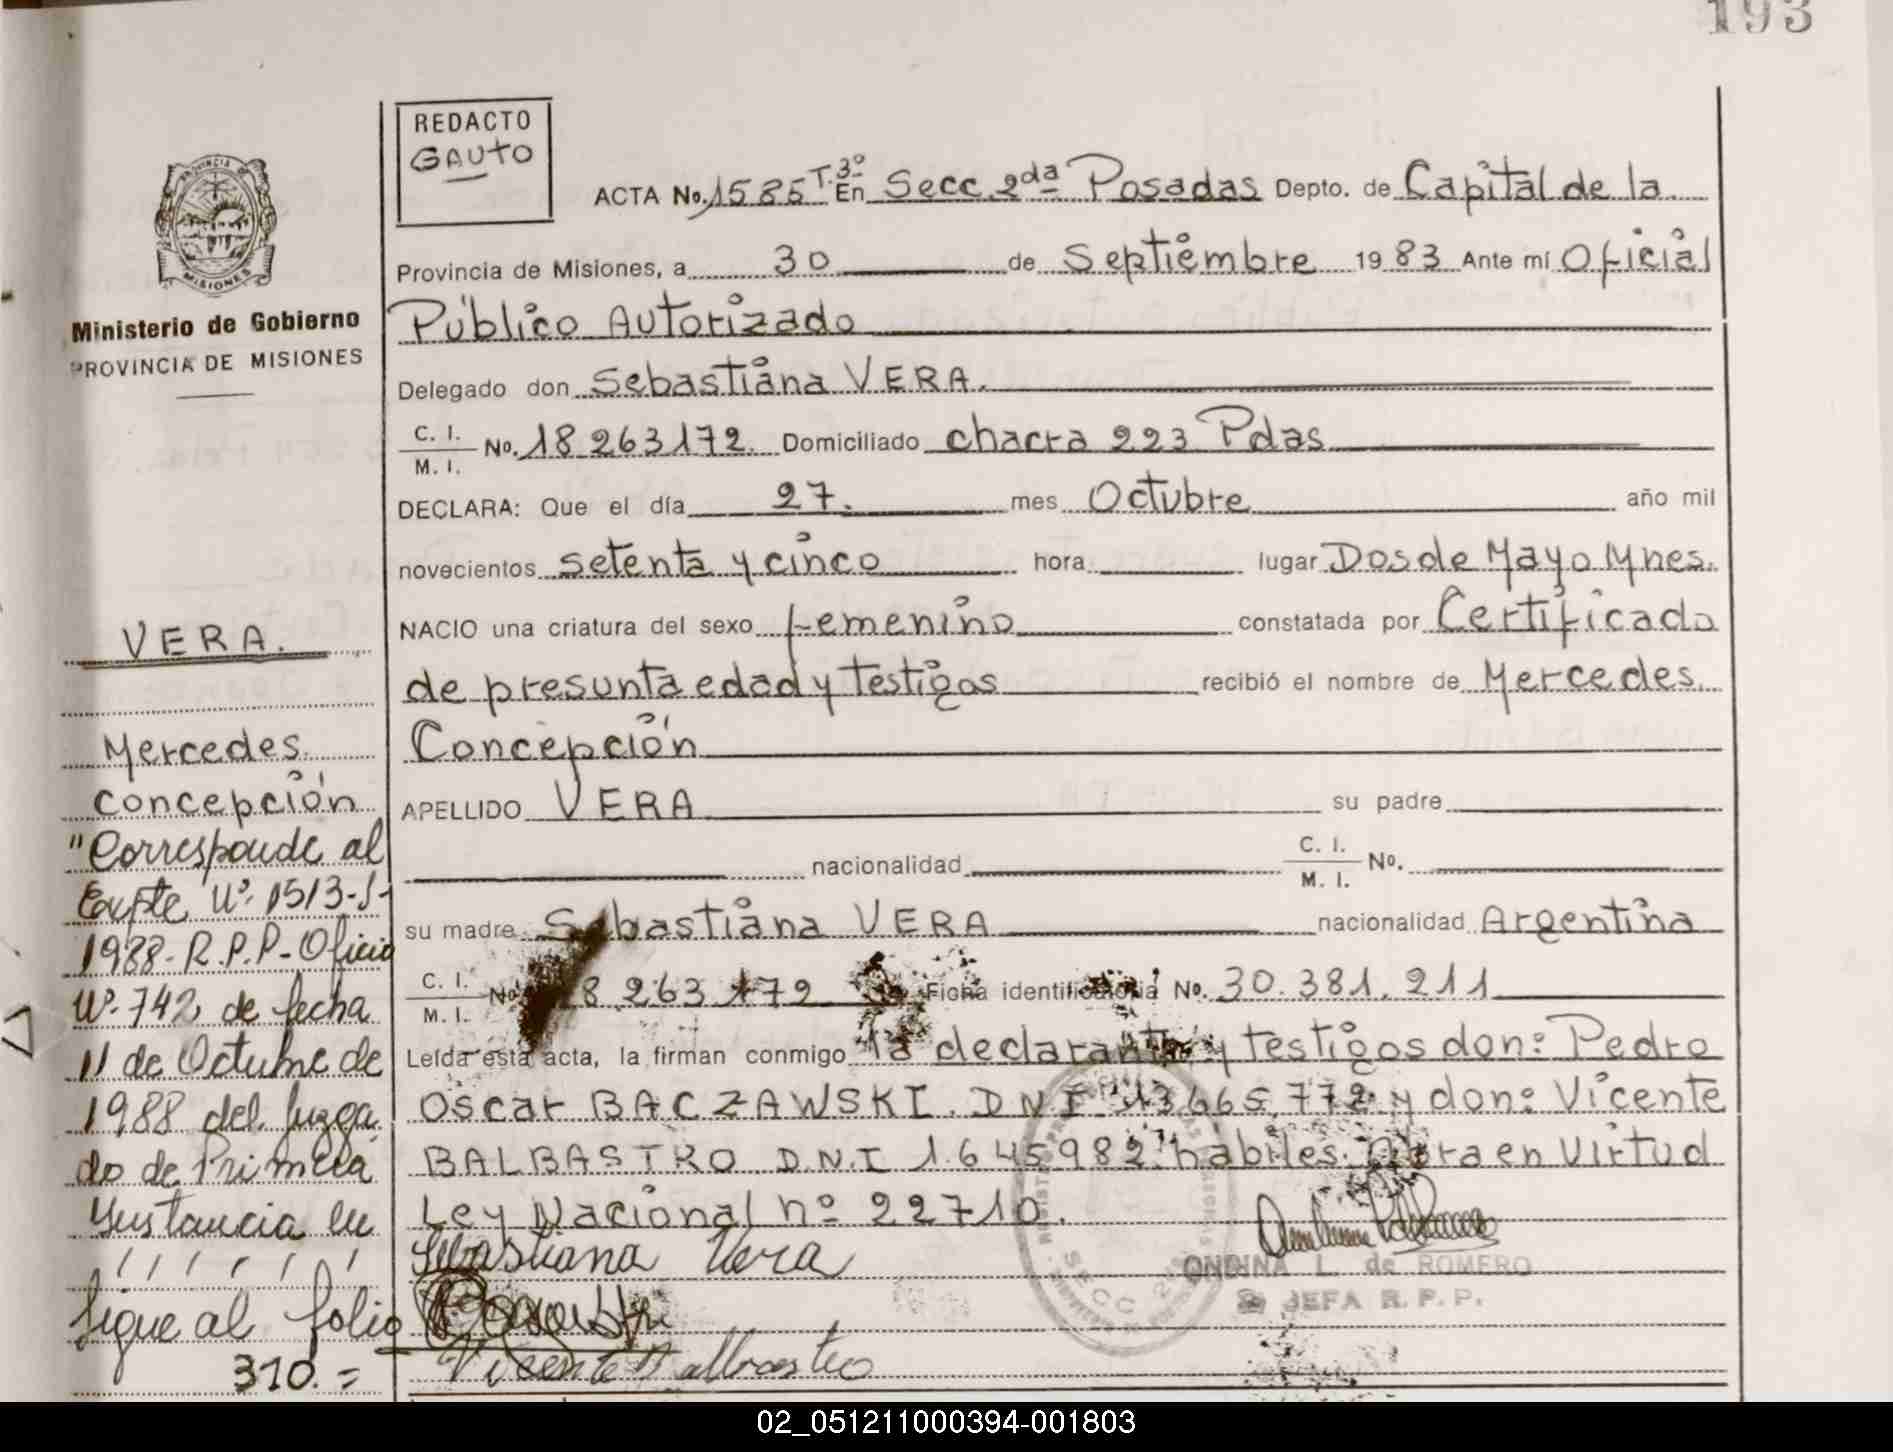 193
REDACTO
GAUTO
ACTA No. 1585 T. 3º En Secc. 2da Posadas Depto. de Capital de la
Provincia de Misiones, a 30 de Septiembre 1983 Ante mí Oficial
Público Autorizado
Delegado don Sebastiana VERA.
C. I. M. I. No. 18 263172. Domiciliado chacra 223 Pdas
DECLARA: Que el día 27. mes Octubre año mil
novecientos setenta y cinco hora lugar Dos de Mayo Mnes.
NACIO una criatura del sexo femenino constatada por Certificado
de presunta edad y testigos recibió el nombre de Mercedes
Concepción
APELLIDO VERA su padre
nacionalidad C. I. M. I. No.
su madre Sebastiana VERA nacionalidad Argentina
C. I. M. I. No. 18 263 172 Ficha identificatoria No. 30.381.211
Leída esta acta, la firman conmigo la declarante y testigos don: Pedro
Oscar BACZAWSKI. DNI 13665.772 y don: Vicente
BALBASTRO D.N.I 1.645982 hábiles. Obra en Virtud
Ley Nacional nº 22710.
Sebastiana Vera
Vicente Balbastro
ONDINA L. de ROMERO
JEFA R. P. P.
SECC 2
PROVINCIA DE
MISIONES
Ministerio de Gobierno
PROVINCIA DE MISIONES
VERA.
Mercedes
Concepción
"Corresponde al
Expte Nº 1513-S-
1988-R.P.P-Oficio
Nº 742 de fecha
11 de Octubre de
1988 del Juzga
do de Primera
Instancia en
/ / / / / /
Sigue al folio
310.=
02_051211000394-001803